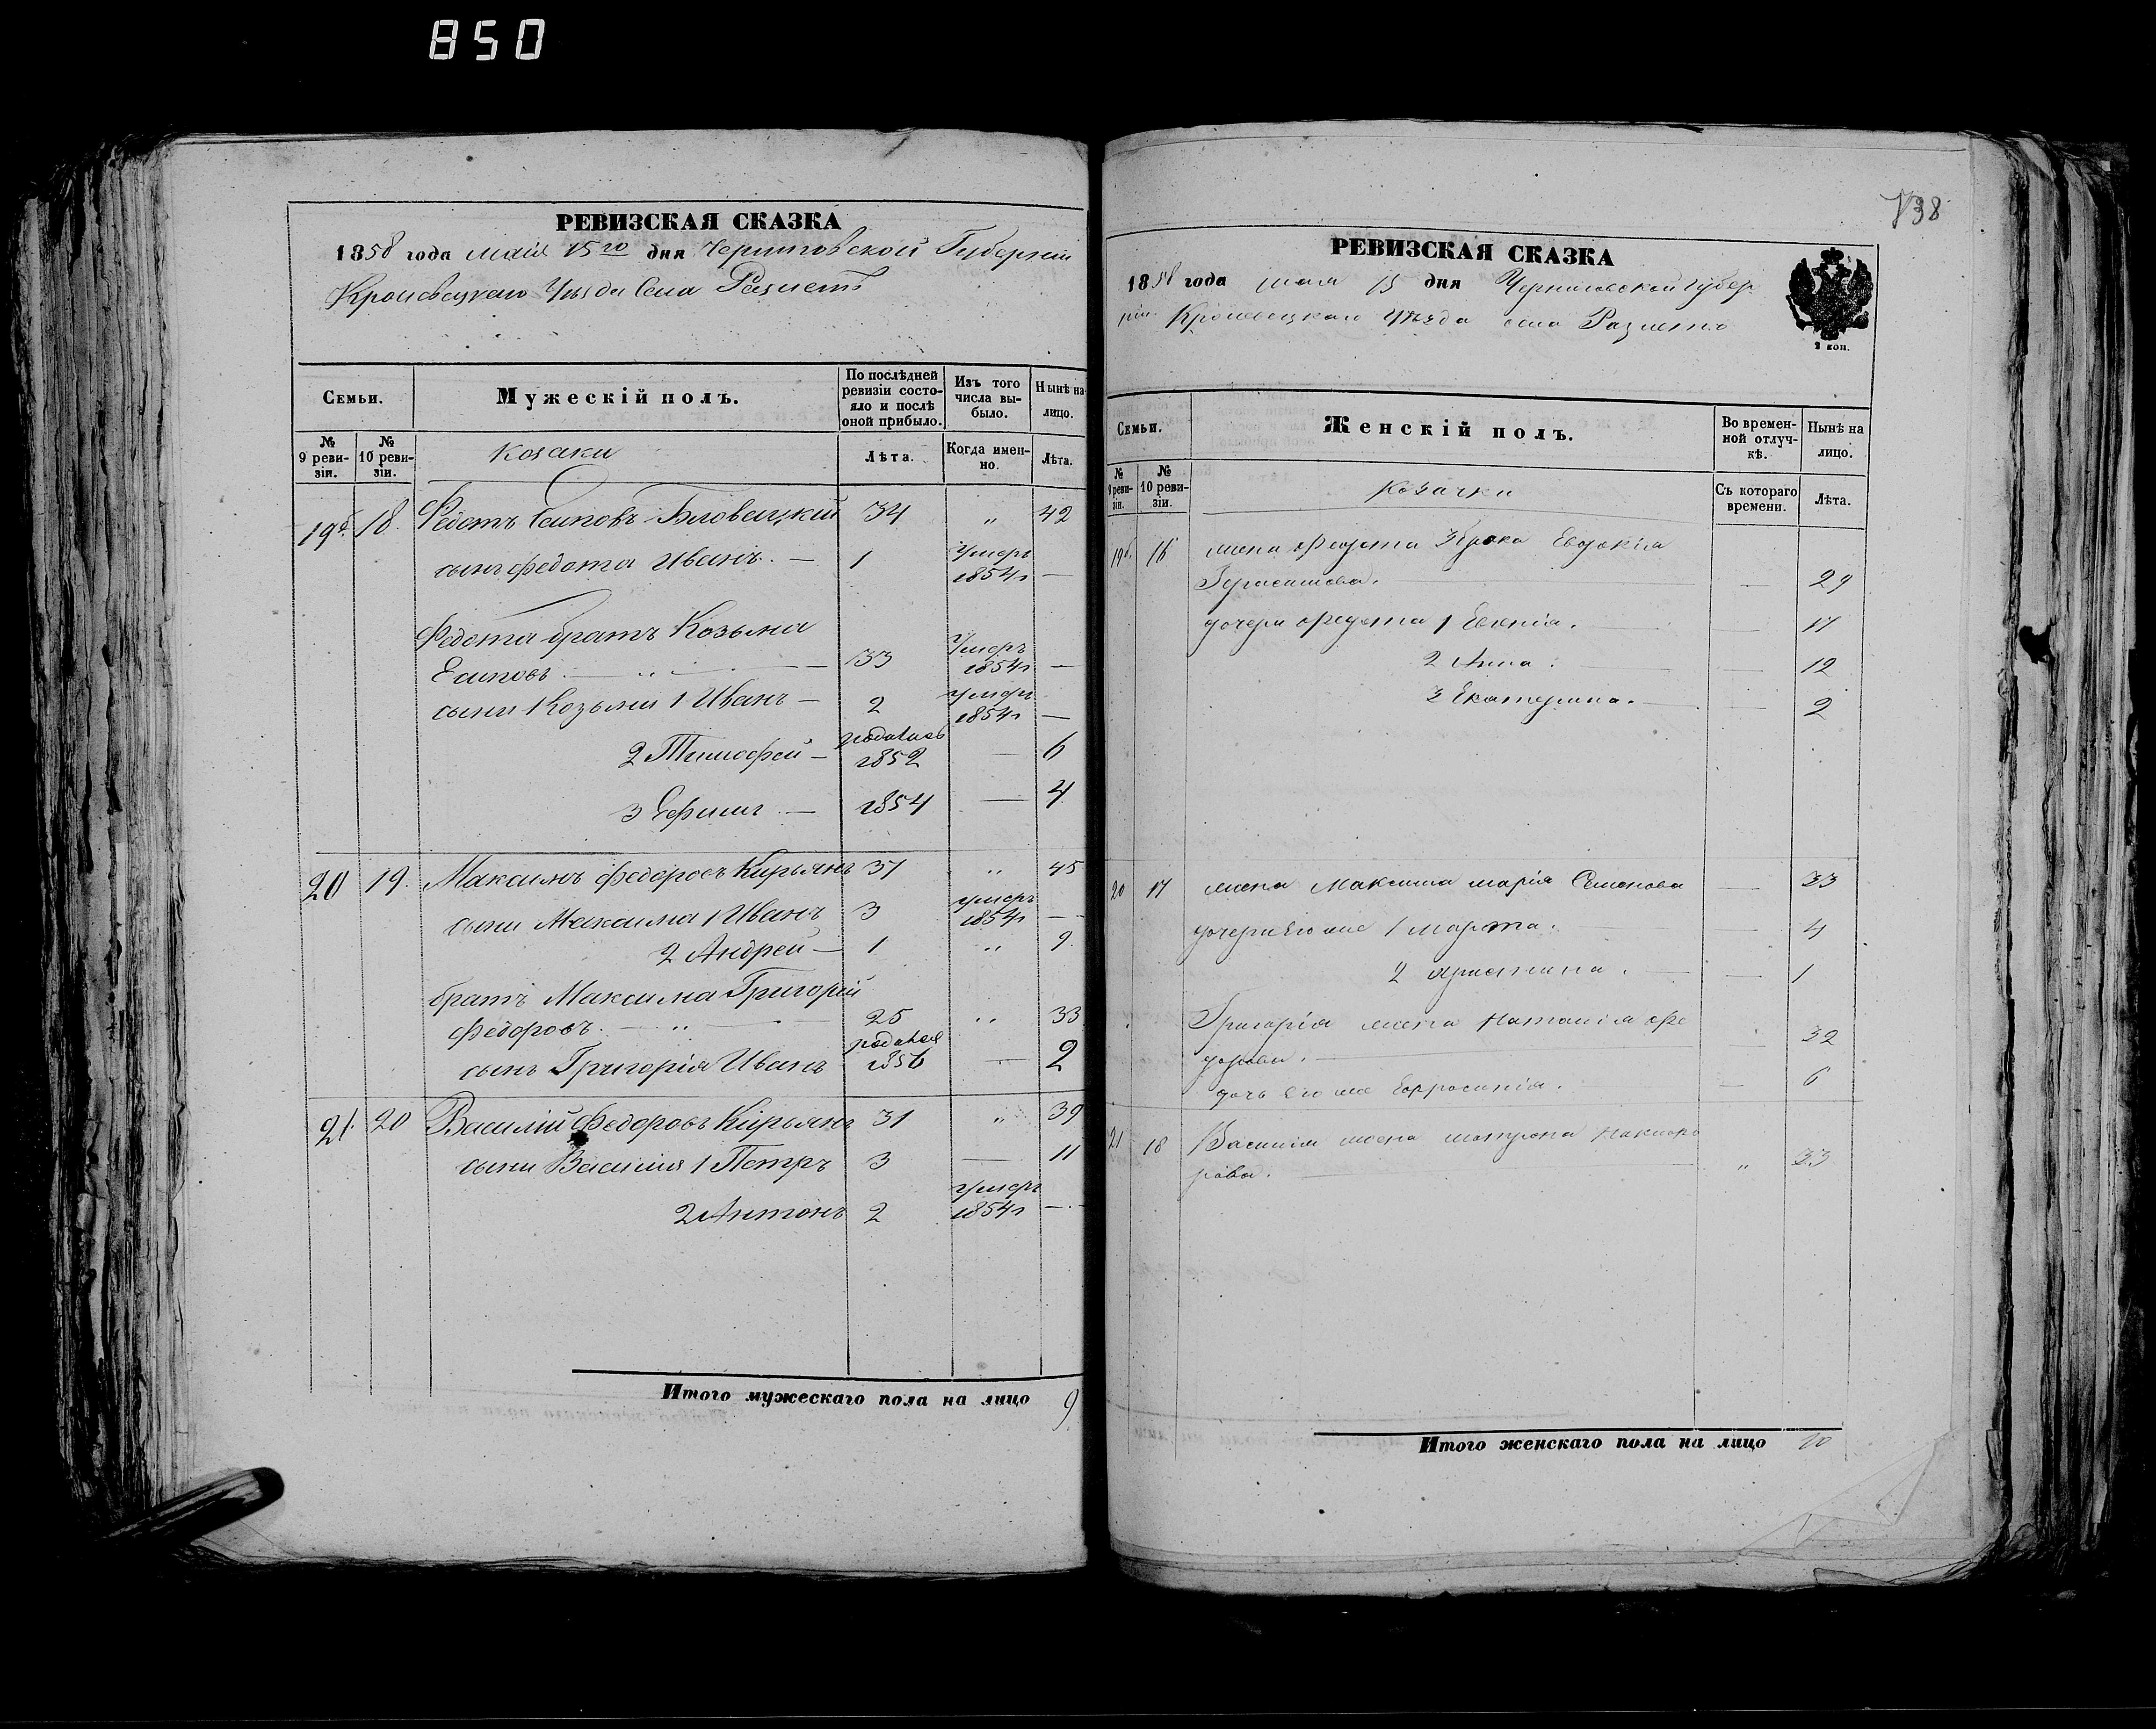 850
РЕВИЗСКАЯ СКАЗКА
1858 года маія 15го дня Черниговской Губерніи
Кролевецкаго Уѣзда Села
Семьи.
Мужескій полъ.
По послѣдней ревизіи состояло и послѣ оной прибыло.
Изъ того числа выбыло.
Нынѣ на лицо.
№ 9 ревизіи.
№ 10 ревизіи.
Козаки
Лѣта.
Когда именно.
Лѣта.
18. Федотъ Есиповъ 34 „ 42
сынъ Федота Иванъ. — 1 Умеръ 1854г —
Федота братъ Козьма
Есиповъ — „ — 33 Умеръ 1854г —
сыни Козьми 1 Иванъ — 2 умеръ 1854г —
2 Тимофей — родился 1852 — 6
3 Ефимъ — 1854 — 4
20 19. Максимъ Федоровъ Кирьянъ 37 „ 45
сыни Максима 1 Иванъ 3 умеръ 1854г —
2 Андрей — 1 „ 9
братъ Максима Григорій
Федоровъ. — „ — 25 „ 33
сынъ Григорія Иванъ родился 1856 — 2
21. 20 Василій Федоровъ Кирьянъ 31 „ 39
сыни Василия 1 Петръ 3 — 11
2 Антонъ 2 умеръ 1854г —
Итого мужескаго пола на лицо 9
738
РЕВИЗСКАЯ СКАЗКА
1858 года мая 15 дня Черниговской губер
ніи Кролевецкаго Уѣзда села
2 коп.
Семьи.
Женскій полъ.
Во временной отлучкѣ.
Нынѣ на лицо.
№ 9 ревизіи.
№ 10 ревизіи.
Козачки
Съ котораго времени.
Лѣта.
16 жена Федота Евдокія
Герасимова. — 29
дочери Федота 1 Евгенія. — 17
2 Анна. — 12
3 Екатерина. — 2
20 17 жена Максима марія Семенова — 33
дочери Его же 1 Марфа. — 4
2 Христина. — 1
Григорія жена Наталія Фе
дорова. — 32
дочь его же Ефросинія. — 6
21 18 Василія жена матрона
рова. — „ 33
Итого женскаго пола на лицо 10